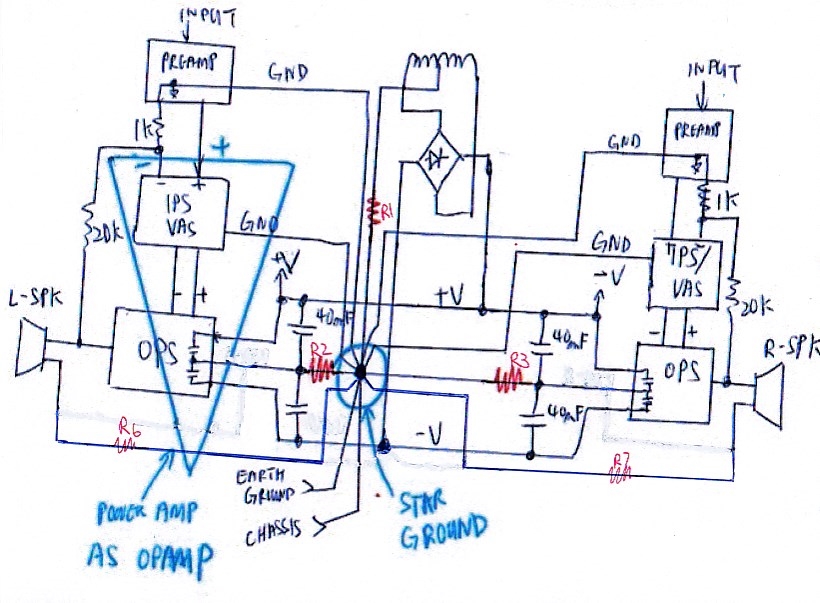 INPUT
PREAMP
GND
1K
-
+
-
+
IPS
VAS
20K
GND
R1
+V
L-SPK
OPS
-
+
40mF
R2
+V
R6
POWER AMP
AS OPAMP
EARTH
GROUND
CHASSIS
STAR
GROUND
-V
INPUT
PREAMP
GND
1K
GND
IPS/
VAS
-V
20K
-
+
40mF
R3
OPS
R-SPK
40mF
R7